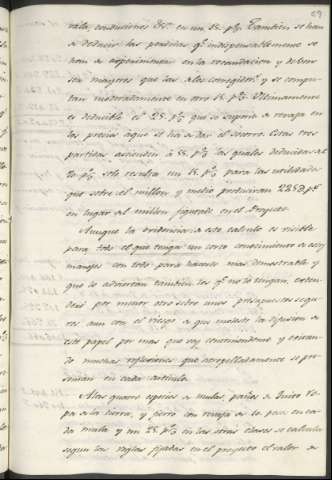 69
vala, conduciones &c. en un 15. p%. Tambien se han
de deducir las perdidas q.e indispensablemente se
han de experimentar en la recaudacion y deben
ser mayores que las de los corregid.s y se compu-
tan moderatamente en otro 15. p%. Ultimamente
es deducible el 25. p% que se suponia de revaja en
los precios a que se ha de dar el socorro. Estas tres
partidas ascienden à 55. p% las quales deducidas al
70 p%. solo resulta un 15. p% para las utilidades
que sobre el millon y medio produciran 225@ p.s
en lugar del millon figurado en el Proyecto.
Aunque la evidencia de este calculo es visible
para todo el que tenga un corto conocimiento de estos
manejos con todo para hacerlo mas demostrable y
que lo adviertan tambien los q.e no lo tengan, exten-
deré por menor otro sobre unos presupuestos segu-
ros aun con el riesgo de que moleste la difusion de
este papel por mas que voy conteniendome y evitan-
do muchas reflexiones que atropelladamente se pre-
sentan en cada articulo.
A las quatro especies de mulas, paños de Quito Ro-
pa de la tierra, y fierro con revaja de 10. pesos en ca-
da mula y un 25. p% en las otras clases se calcula
segun las reglas fijadas en el proyecto el valor de